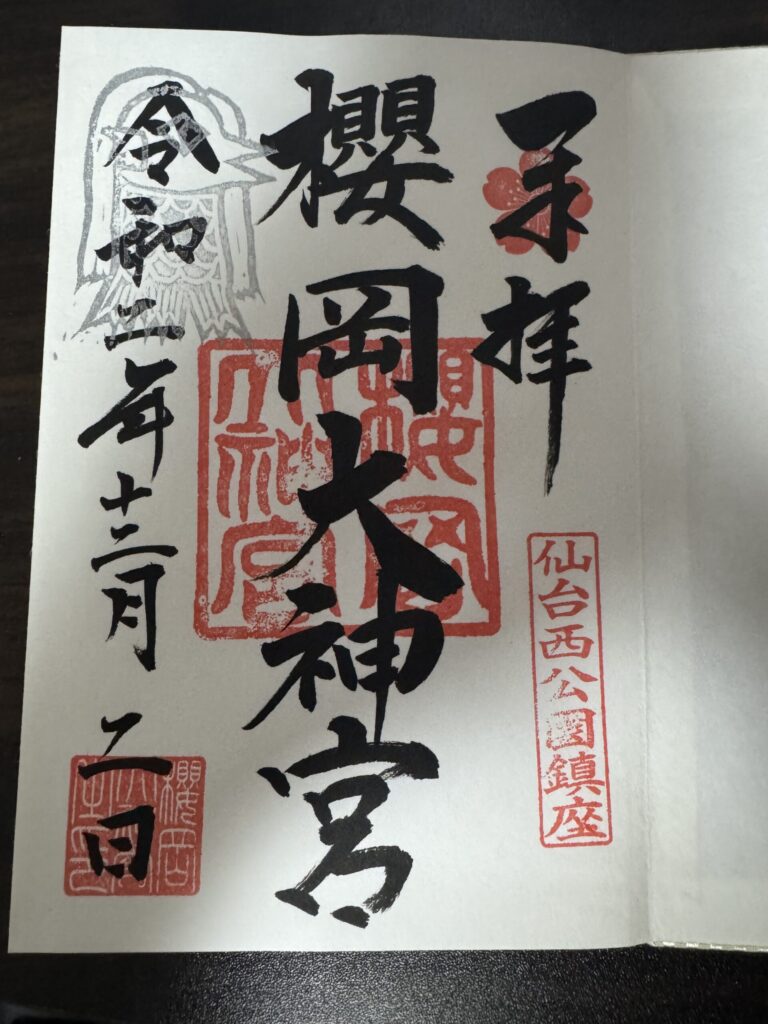 奉拝
仙台西公園鎮座
櫻岡大神宮
櫻岡大神宮
令和二年十二月二日